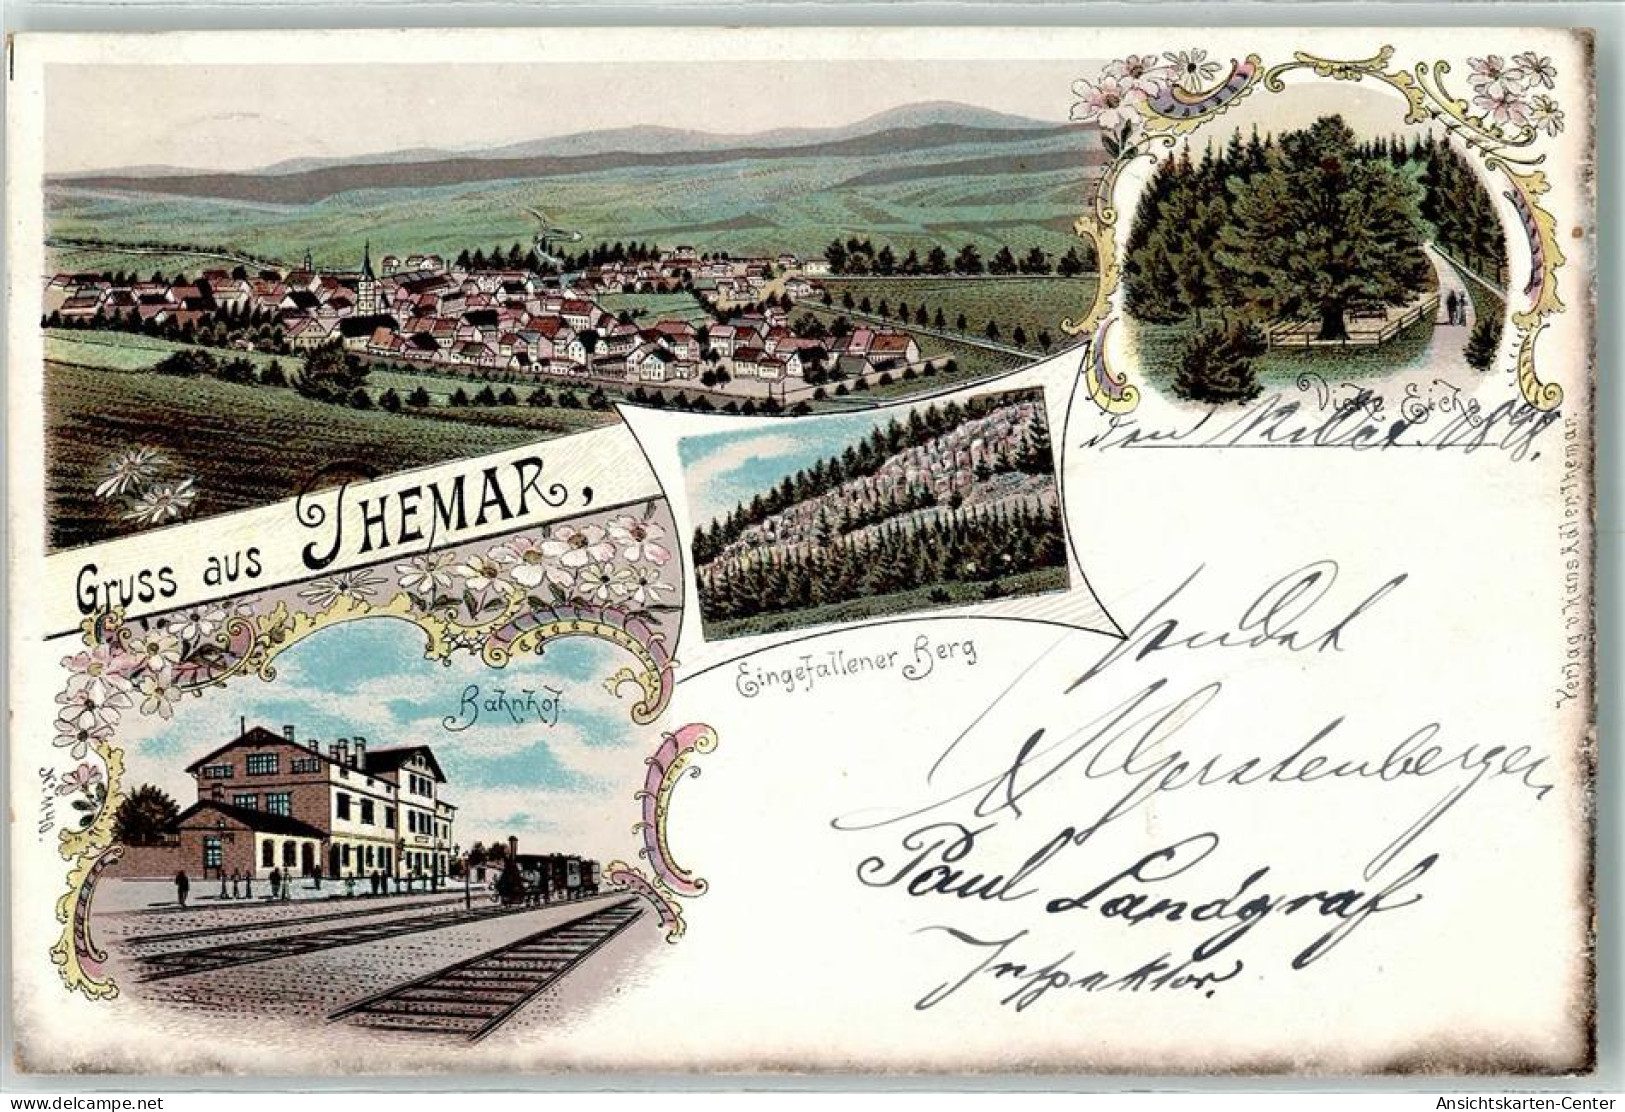 Dicke Eiche
den 1898.
Gruss aus THEMAR,
Eingefallener Berg
Bahnhof.
sendet
Gerstenberger
Paul Landgraf
Inspektor.
Verlag v. Hans Adler Themar.
delcampe.net
Ansichtskarten-Center